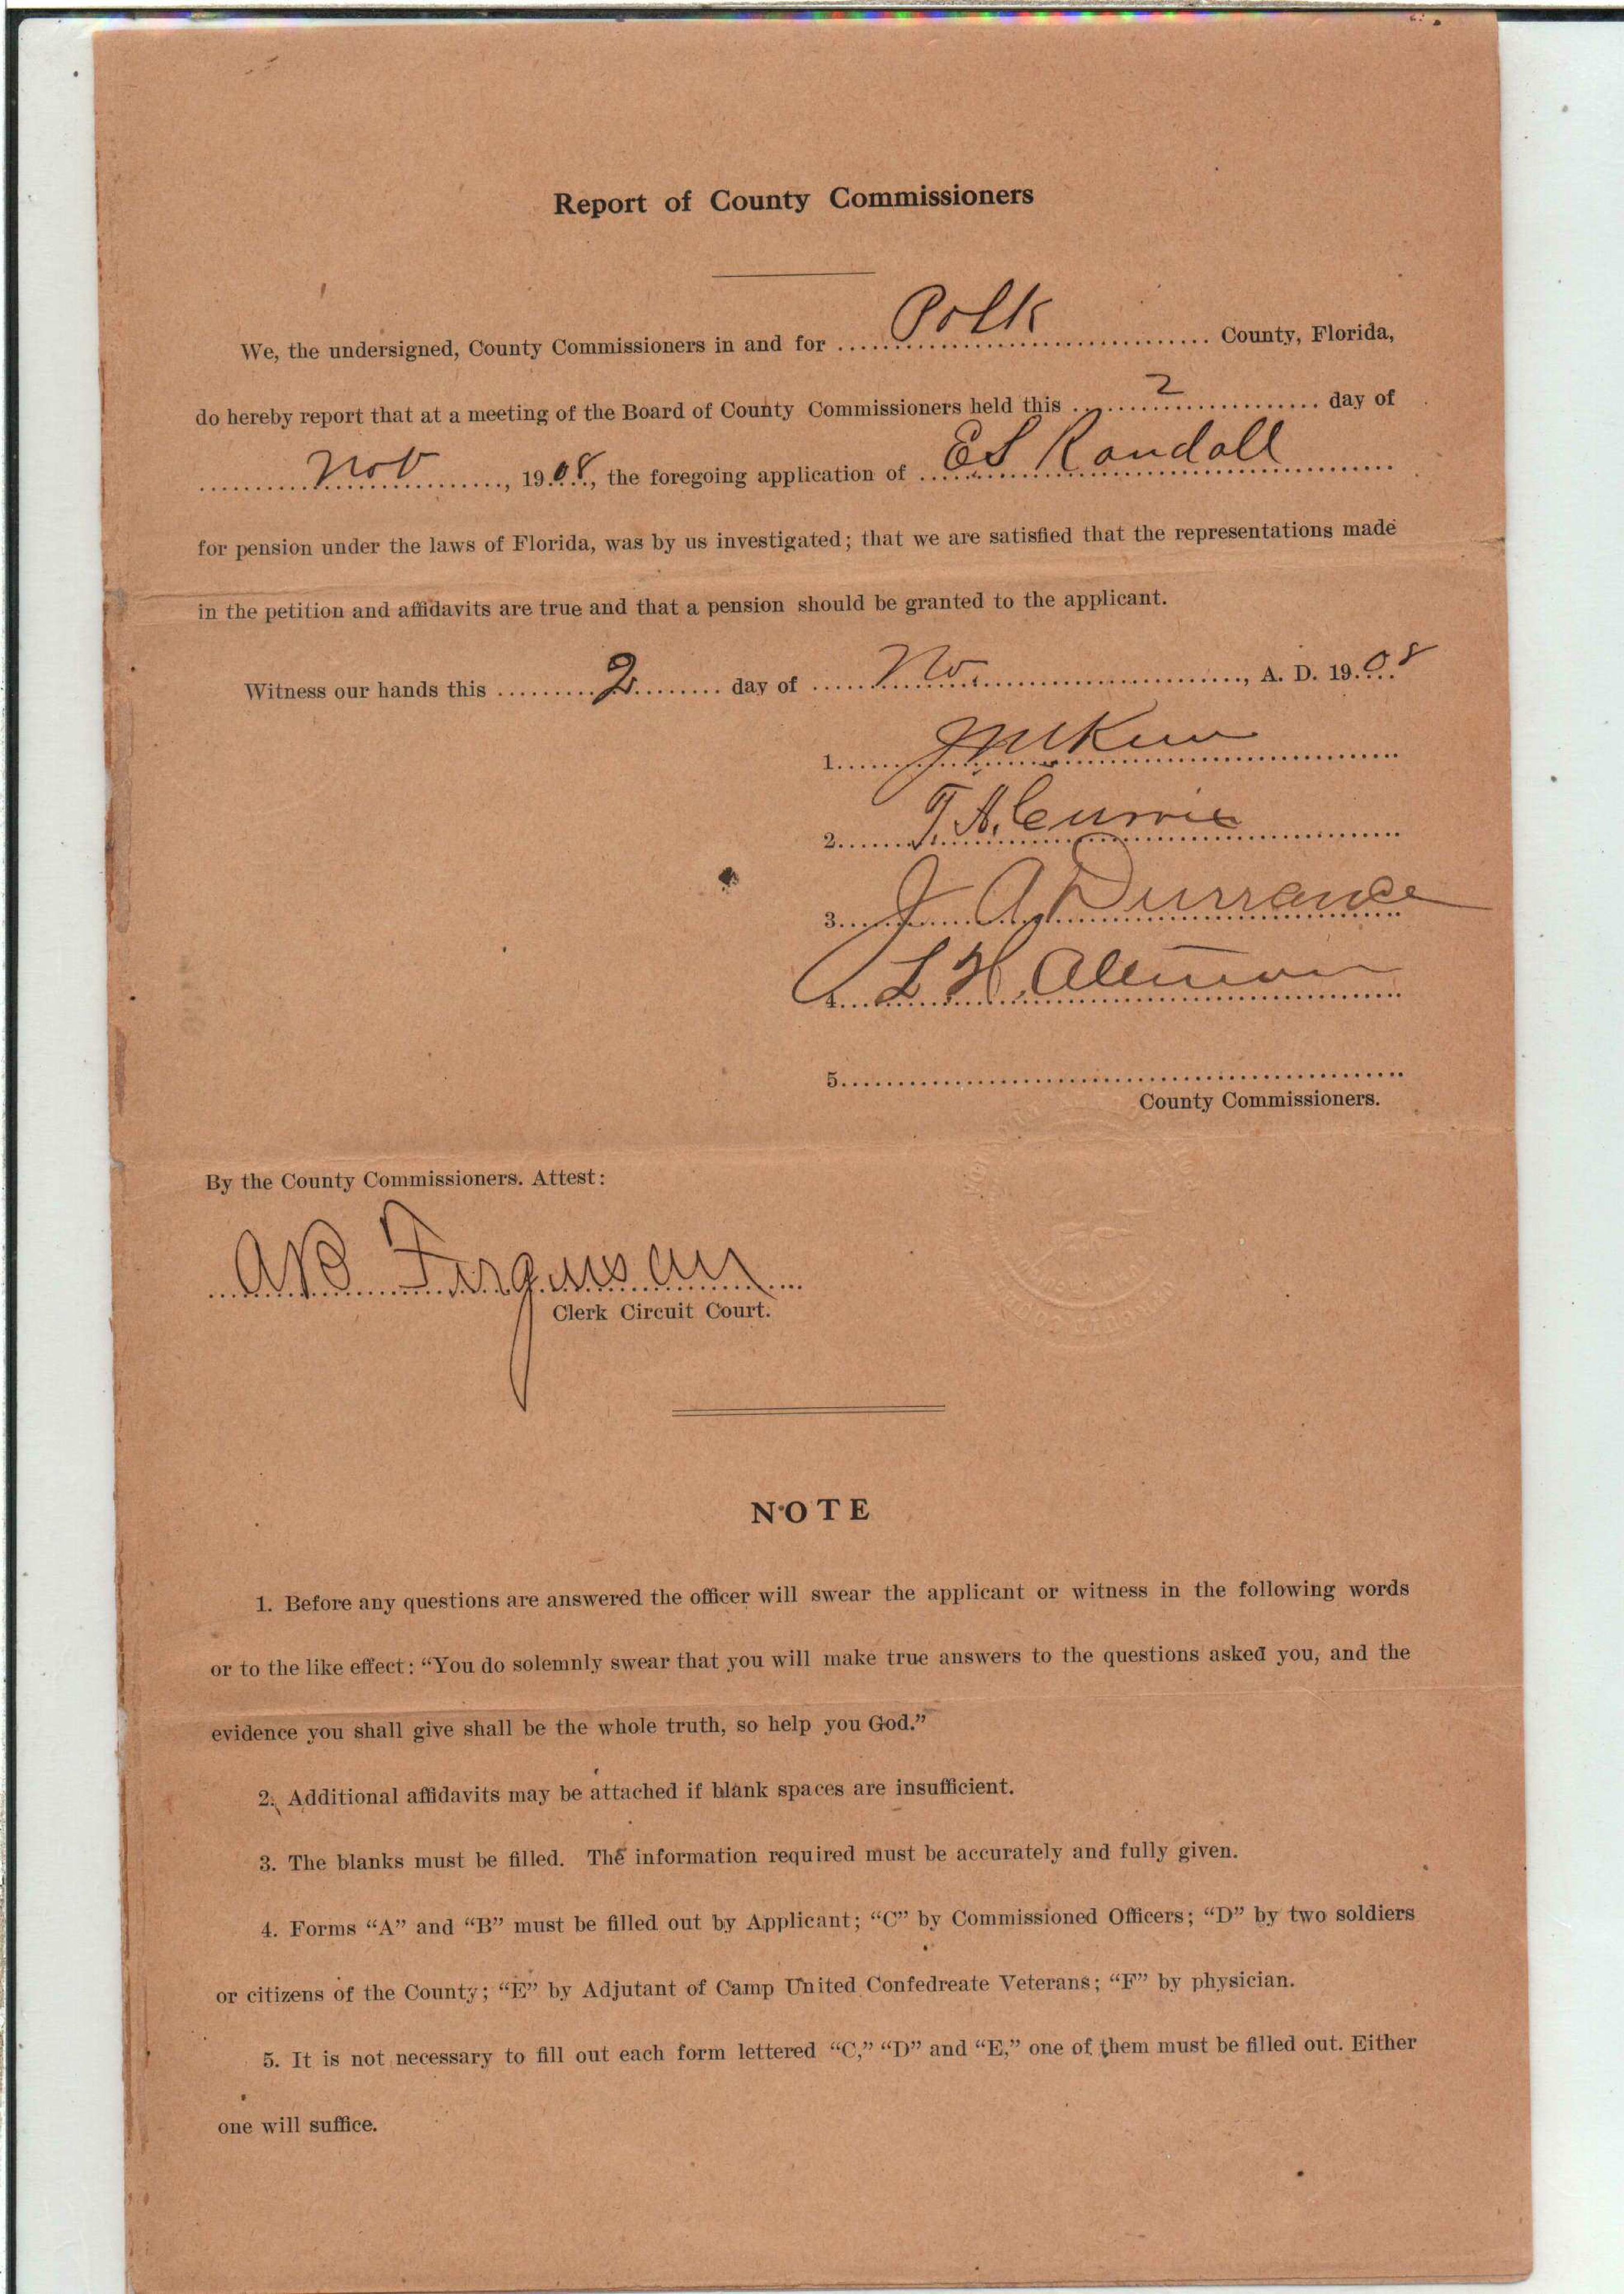 Report of County Commissioners
We, the undersigned, County Commissioners in and for Polk County, Florida,
do hereby report that at a meeting of the Board of County Commissioners held this 2 day of
Nov, 1908, the foregoing application of E S Randall
for pension under the laws of Florida, was by us investigated; that we are satisfied that the representations made
in the petition and affidavits are true and that a pension should be granted to the applicant.
Witness our hands this 2 day of Nov, A. D. 1908
1.
2. T. A. Currie
3. J A Durrance
4. L H.
5.
County Commissioners.
By the County Commissioners. Attest:
A B Ferguson
Clerk Circuit Court.
NOTE
1. Before any questions are answered the officer will swear the applicant or witness in the following words
or to the like effect: “You do solemnly swear that you will make true answers to the questions asked you, and the
evidence you shall give shall be the whole truth, so help you God.”
2. Additional affidavits may be attached if blank spaces are insufficient.
3. The blanks must be filled. The information required must be accurately and fully given.
4. Forms “A” and “B” must be filled out by Applicant; “C” by Commissioned Officers; “D” by two soldiers
or citizens of the County; “E” by Adjutant of Camp United Confedreate Veterans; “F” by physician.
5. It is not necessary to fill out each form lettered “C,” “D” and “E,” one of them must be filled out. Either
one will suffice.